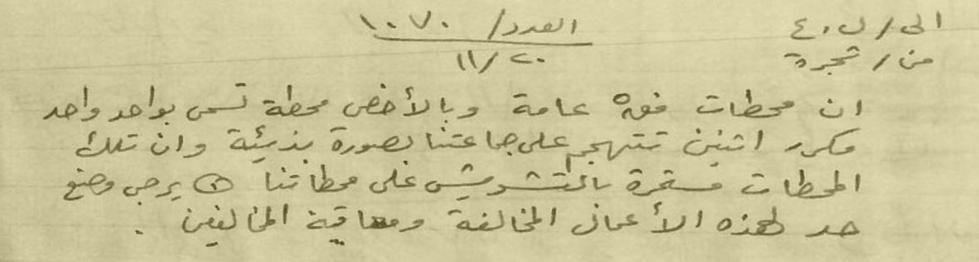 الى / ل . ٤ العدد / ١٠٧٠
من / شجرة ٢٠ / ١١
ان محطات فعه عامة وبالأخص محطة تسمى بواحد واحد
مكرر اثنين تتهجم على جماعتنا بصورة بذيئة وان تلك
المحطات مستمرة بالتشويش على محطاتنا (.) يرجى وضع
حد لهذه الأعمال المخالفة ومعاقبة المخالفين .